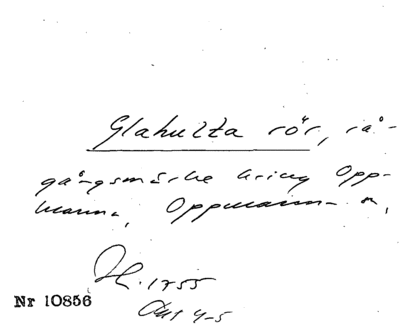 Glahulta rör, rå-
gångsmärke kring Opp-
manna, Oppmanna sn,
1755
Akt 4-5
Nr 10856